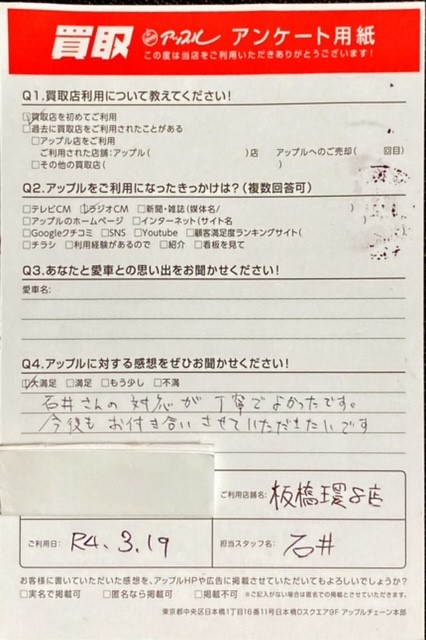 買取 アップル アンケート用紙
この度は当店をご利用いただきありがとうございます!
Q1.買取店利用について教えてください!
☑買取店を初めてご利用
□過去に買取店をご利用されたことがある
□アップル店をご利用
ご利用された店舗:アップル( )店 アップルへのご売却( 回目)
□その他の買取店( )
Q2.アップルをご利用になったきっかけは?(複数回答可)
□テレビCM ☑ラジオCM □新聞・雑誌(媒体名/ )
□アップルのホームページ □インターネット(サイト名 )
□Googleクチコミ □SNS □Youtube □顧客満足度ランキングサイト( )
□チラシ □利用経験があるので □紹介 □看板を見て
Q3.あなたと愛車との思い出をお聞かせください!
愛車名:
Q4.アップルに対する感想をぜひお聞かせください!
☑大満足 □満足 □もう少し □不満
石井さんの対応が丁寧でよかったです。
今後もお付き合いさせていただきたいです
ご利用店舗名: 板橋環8店
ご利用日: R4.3.19 担当スタッフ名: 石井
お客様に書いていただいた感想を、アップルHPや広告に掲載させていただいてもよろしいでしょうか?
□実名で掲載可 □匿名なら掲載可 □掲載不可 ※ご記入がない場合は匿名での掲載とさせていただきます。
東京都中央区日本橋1丁目16番11号日本橋Dスクエア9F アップルチェーン本部